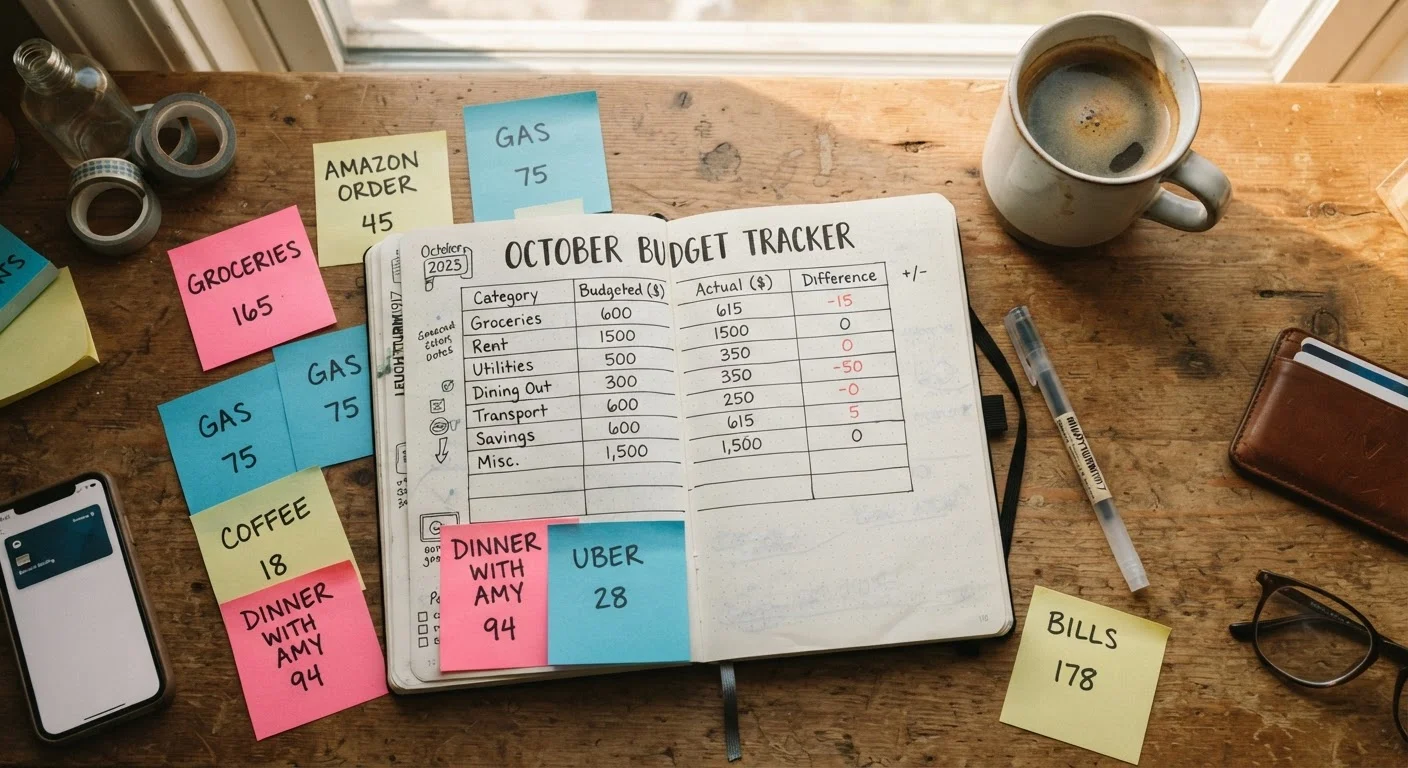 AMAZON
ORDER
45
GAS
75
GROCERIES
165
GAS
75
GAS
75
COFFEE
18
DINNER
WITH
AMY
94
October
2025
OCTOBER BUDGET TRACKER
Category Budgeted ($) Actual ($) Difference +/-
Groceries 600 615 -15
Rent 1500 1500 0
Utilities 500 350 0
Dining Out 300 350 -50
Transport 600 250 -0
Savings 600 615 5
Misc. 1,500 1,500 0
DINNER
WITH
AMY
94
UBER
28
BILLS
178